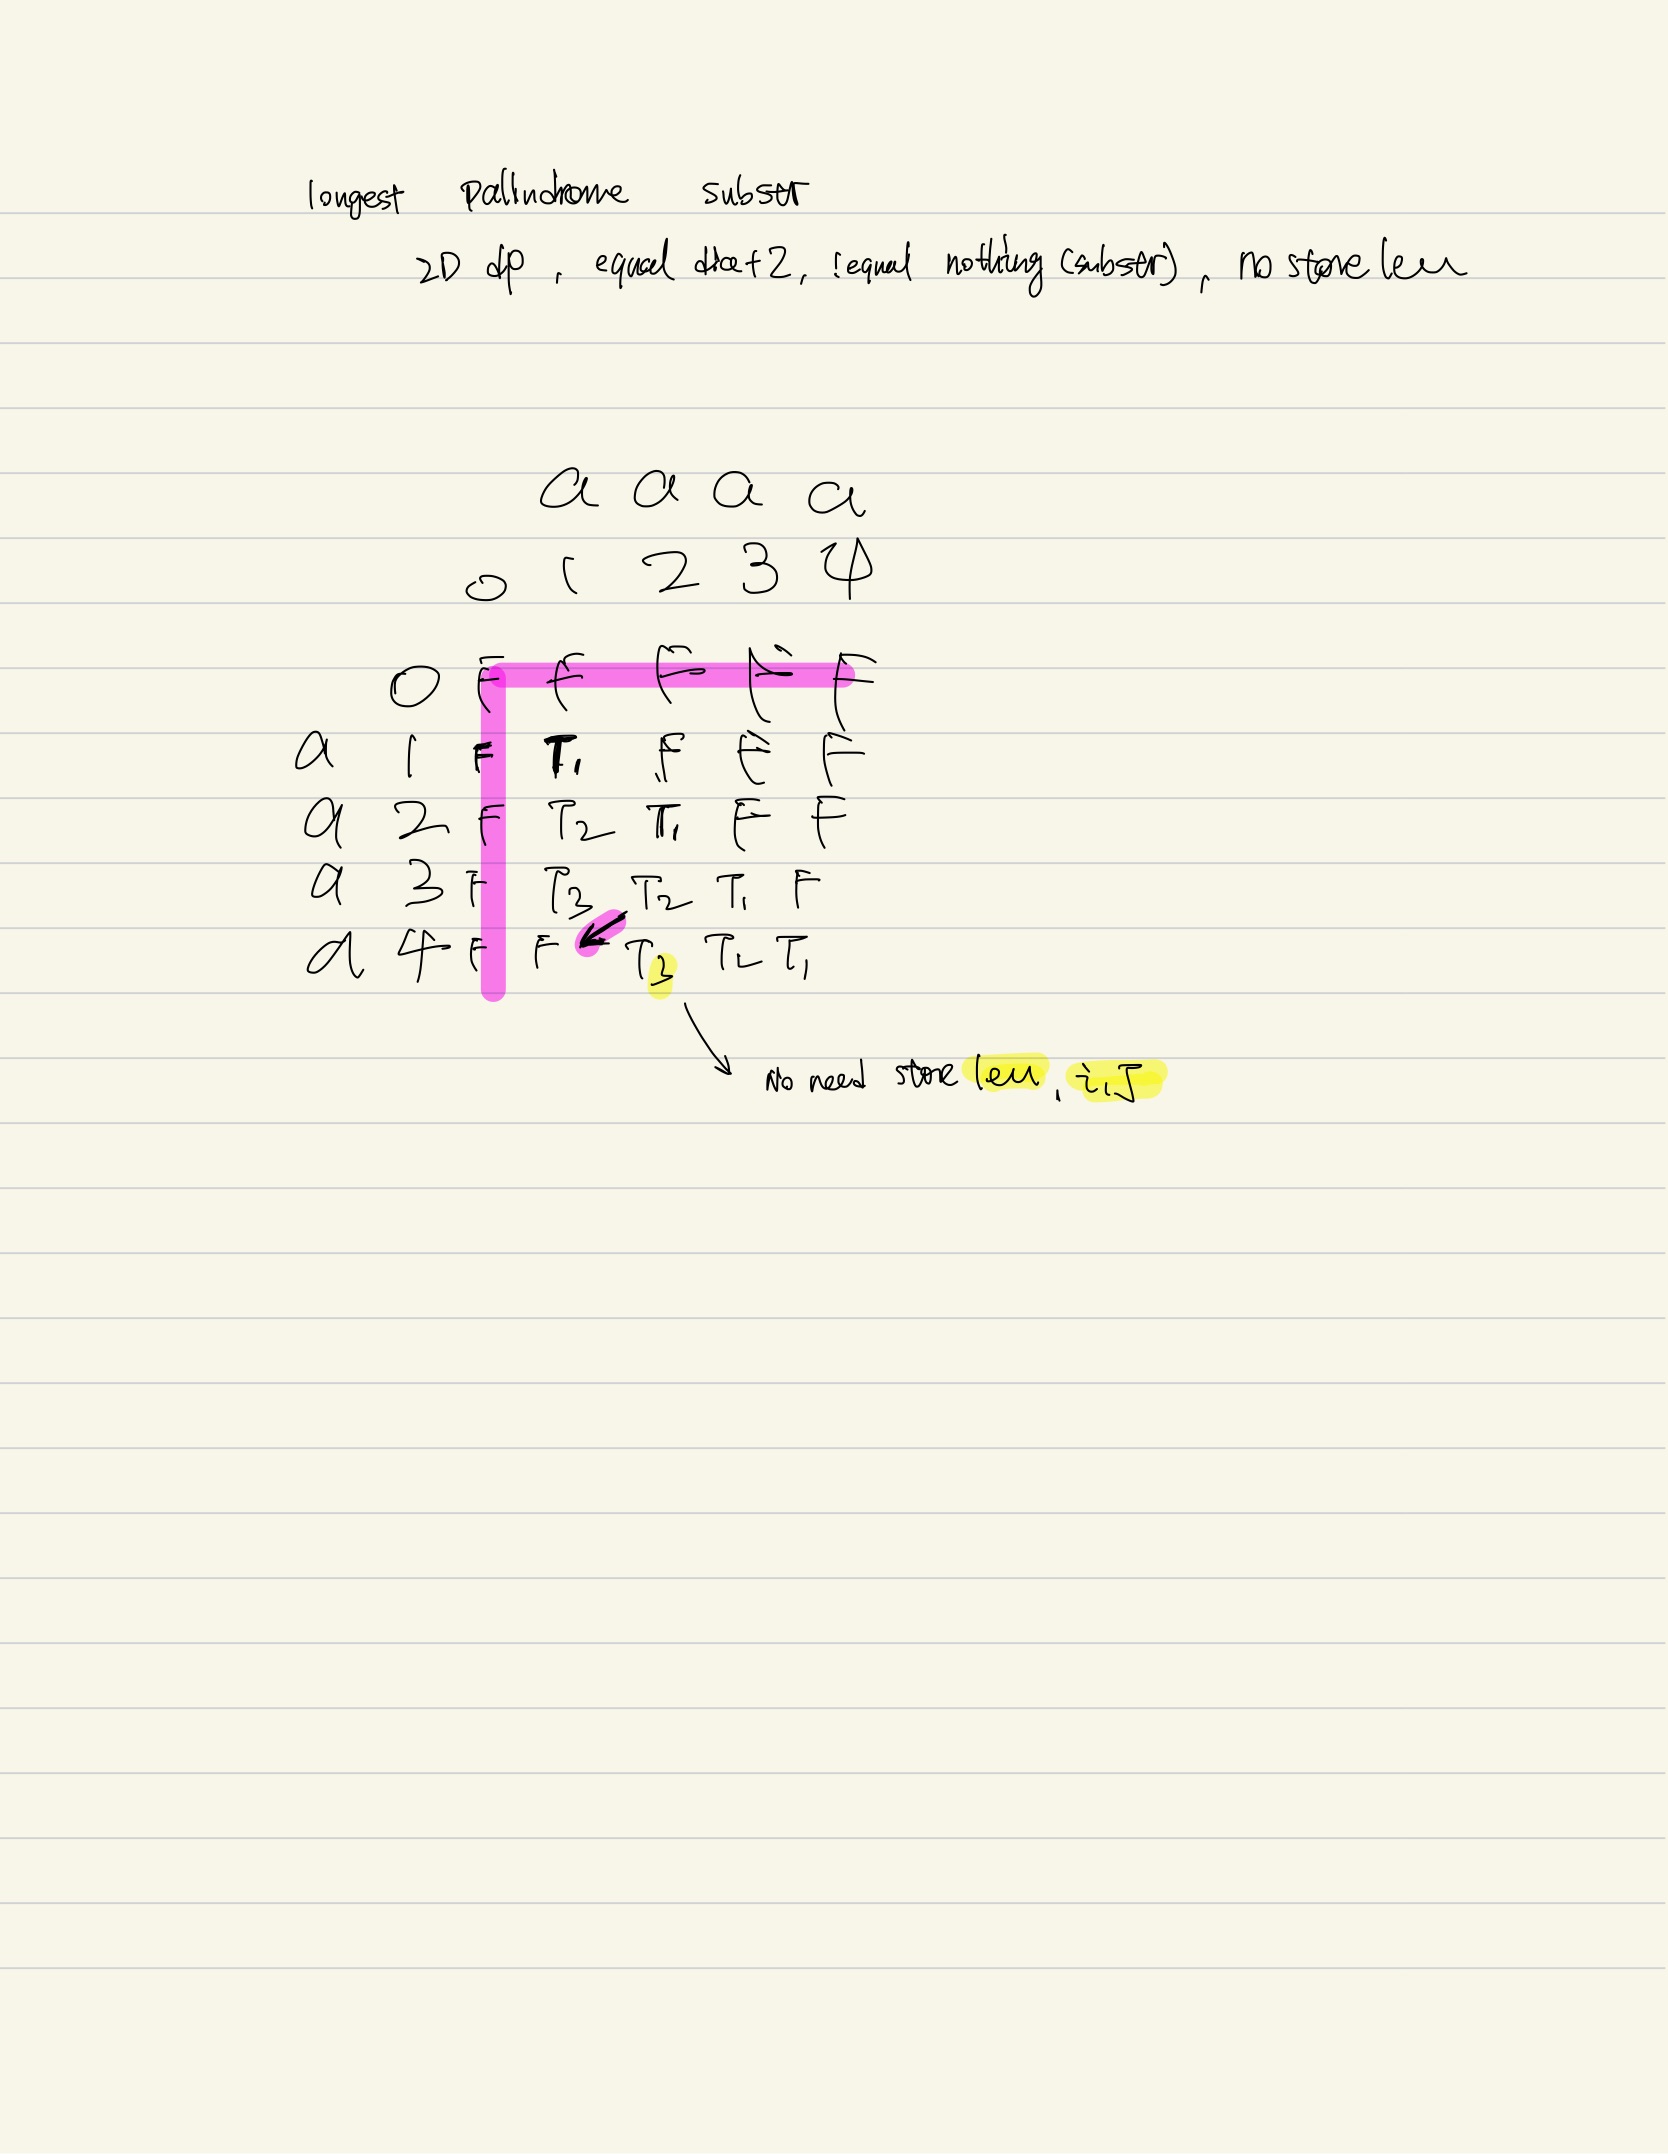 longest palindrome substr
2D dp, equal dia+2, !equal nothing (substr), no store len
a a a a
0 1 2 3 4
0 F F F F F
a 1 F T1 F F F
a 2 F T2 T1 F F
a 3 F T3 T2 T1 F
a 4 F F T3 T2 T1
No need store len, i,j